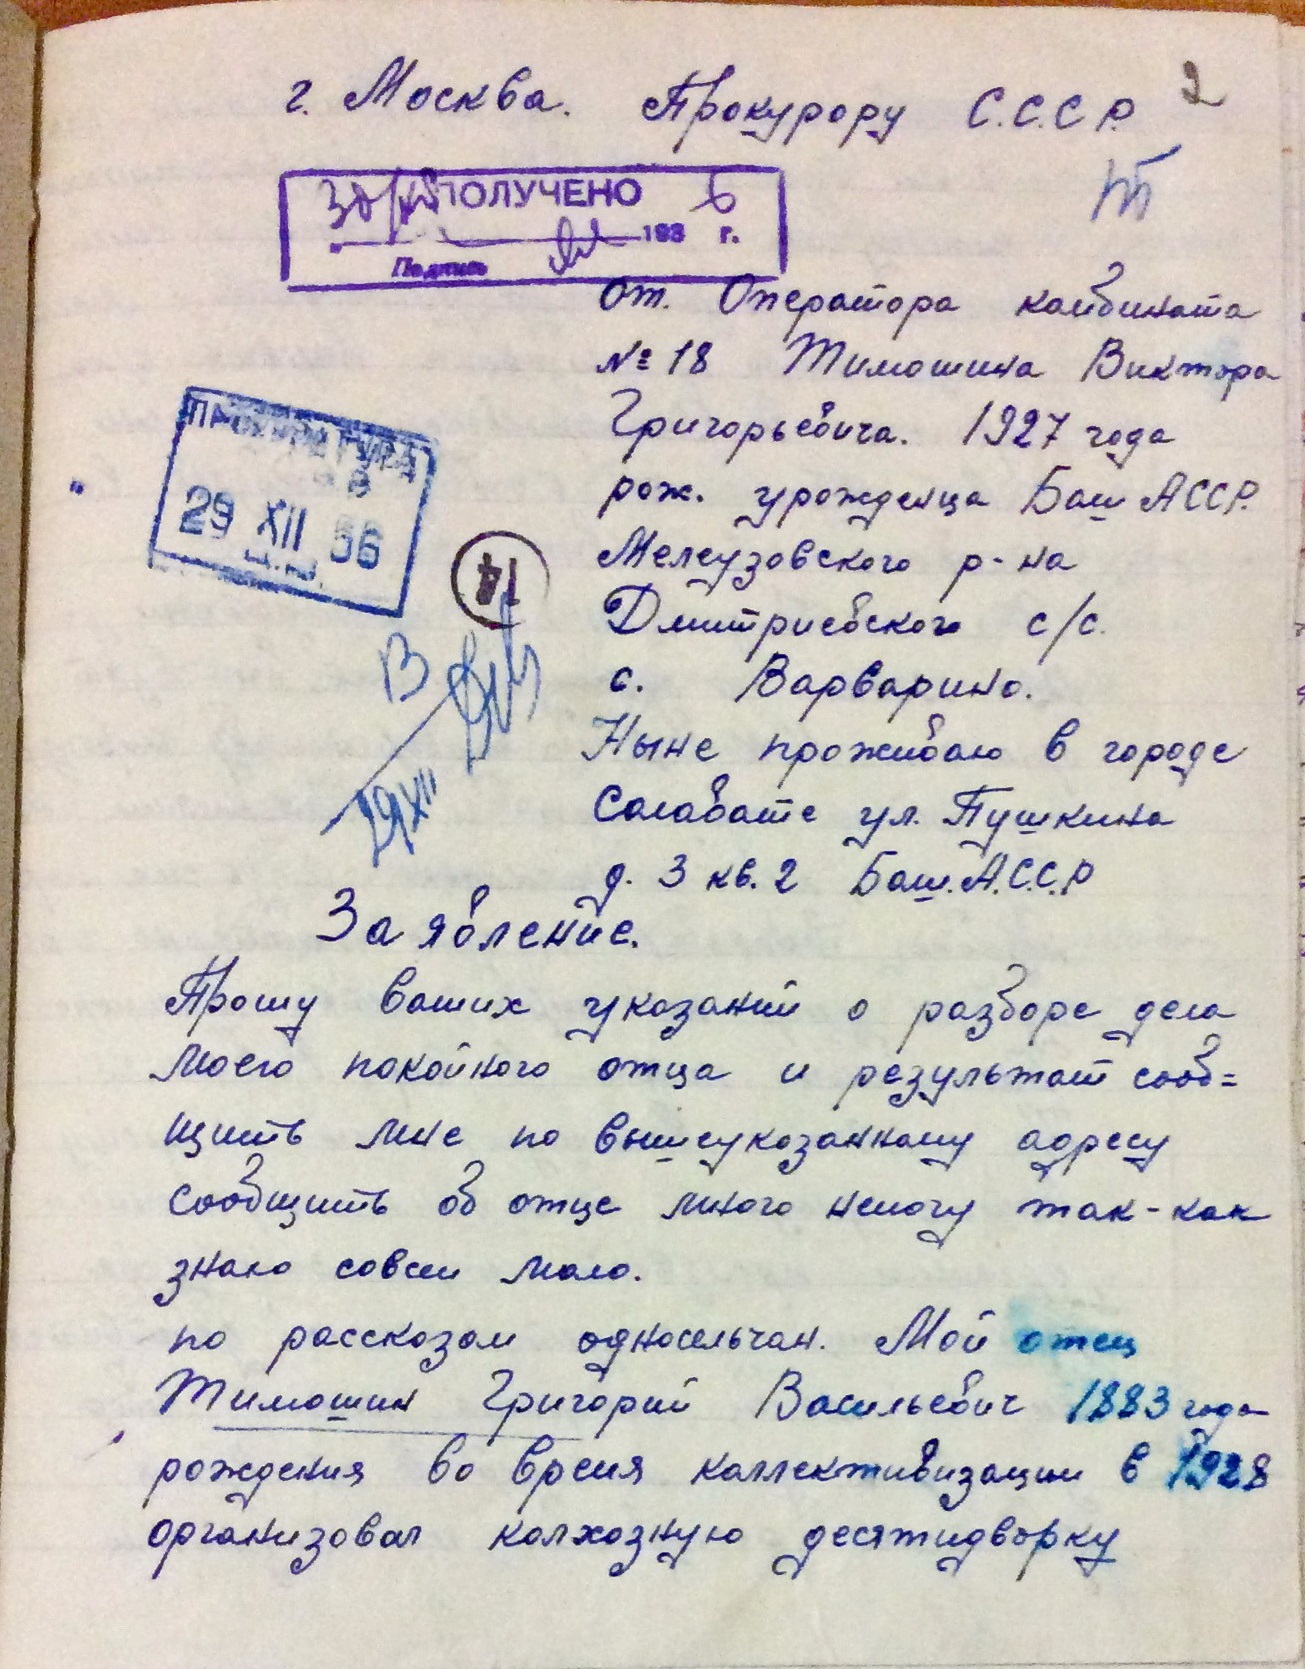 г. Москва. Прокурору С.С.С.Р. 2
ПОЛУЧЕНО 6
193 г.
Подпись
От. Оператора комбината
№ 18 Тимошина Виктора
Григорьевича. 1927 года
ПРОКУРАТУРА
рож. урожденца Баш АССР.
29 XII 56
Мелеузовского р-на
14
Дмитриевского с/с.
с. Варварино.
Ныне проживаю в городе
29/XII
Салавате ул. Пушкина
д. 3 кв. 2 Баш.А.С.С.Р
Заявление.
Прошу ваших указаний о разборе дела
моего покойного отца и результат сооб=
щить мне по вышеуказанному адресу
сообщить об отце много немогу так-как
знаю совсем мало.
по рассказам односельчан. Мой отец
Тимошин Григорий Васильевич 1883 года
рождения во время коллективизации в 1928
организовал колхозную десятидворку